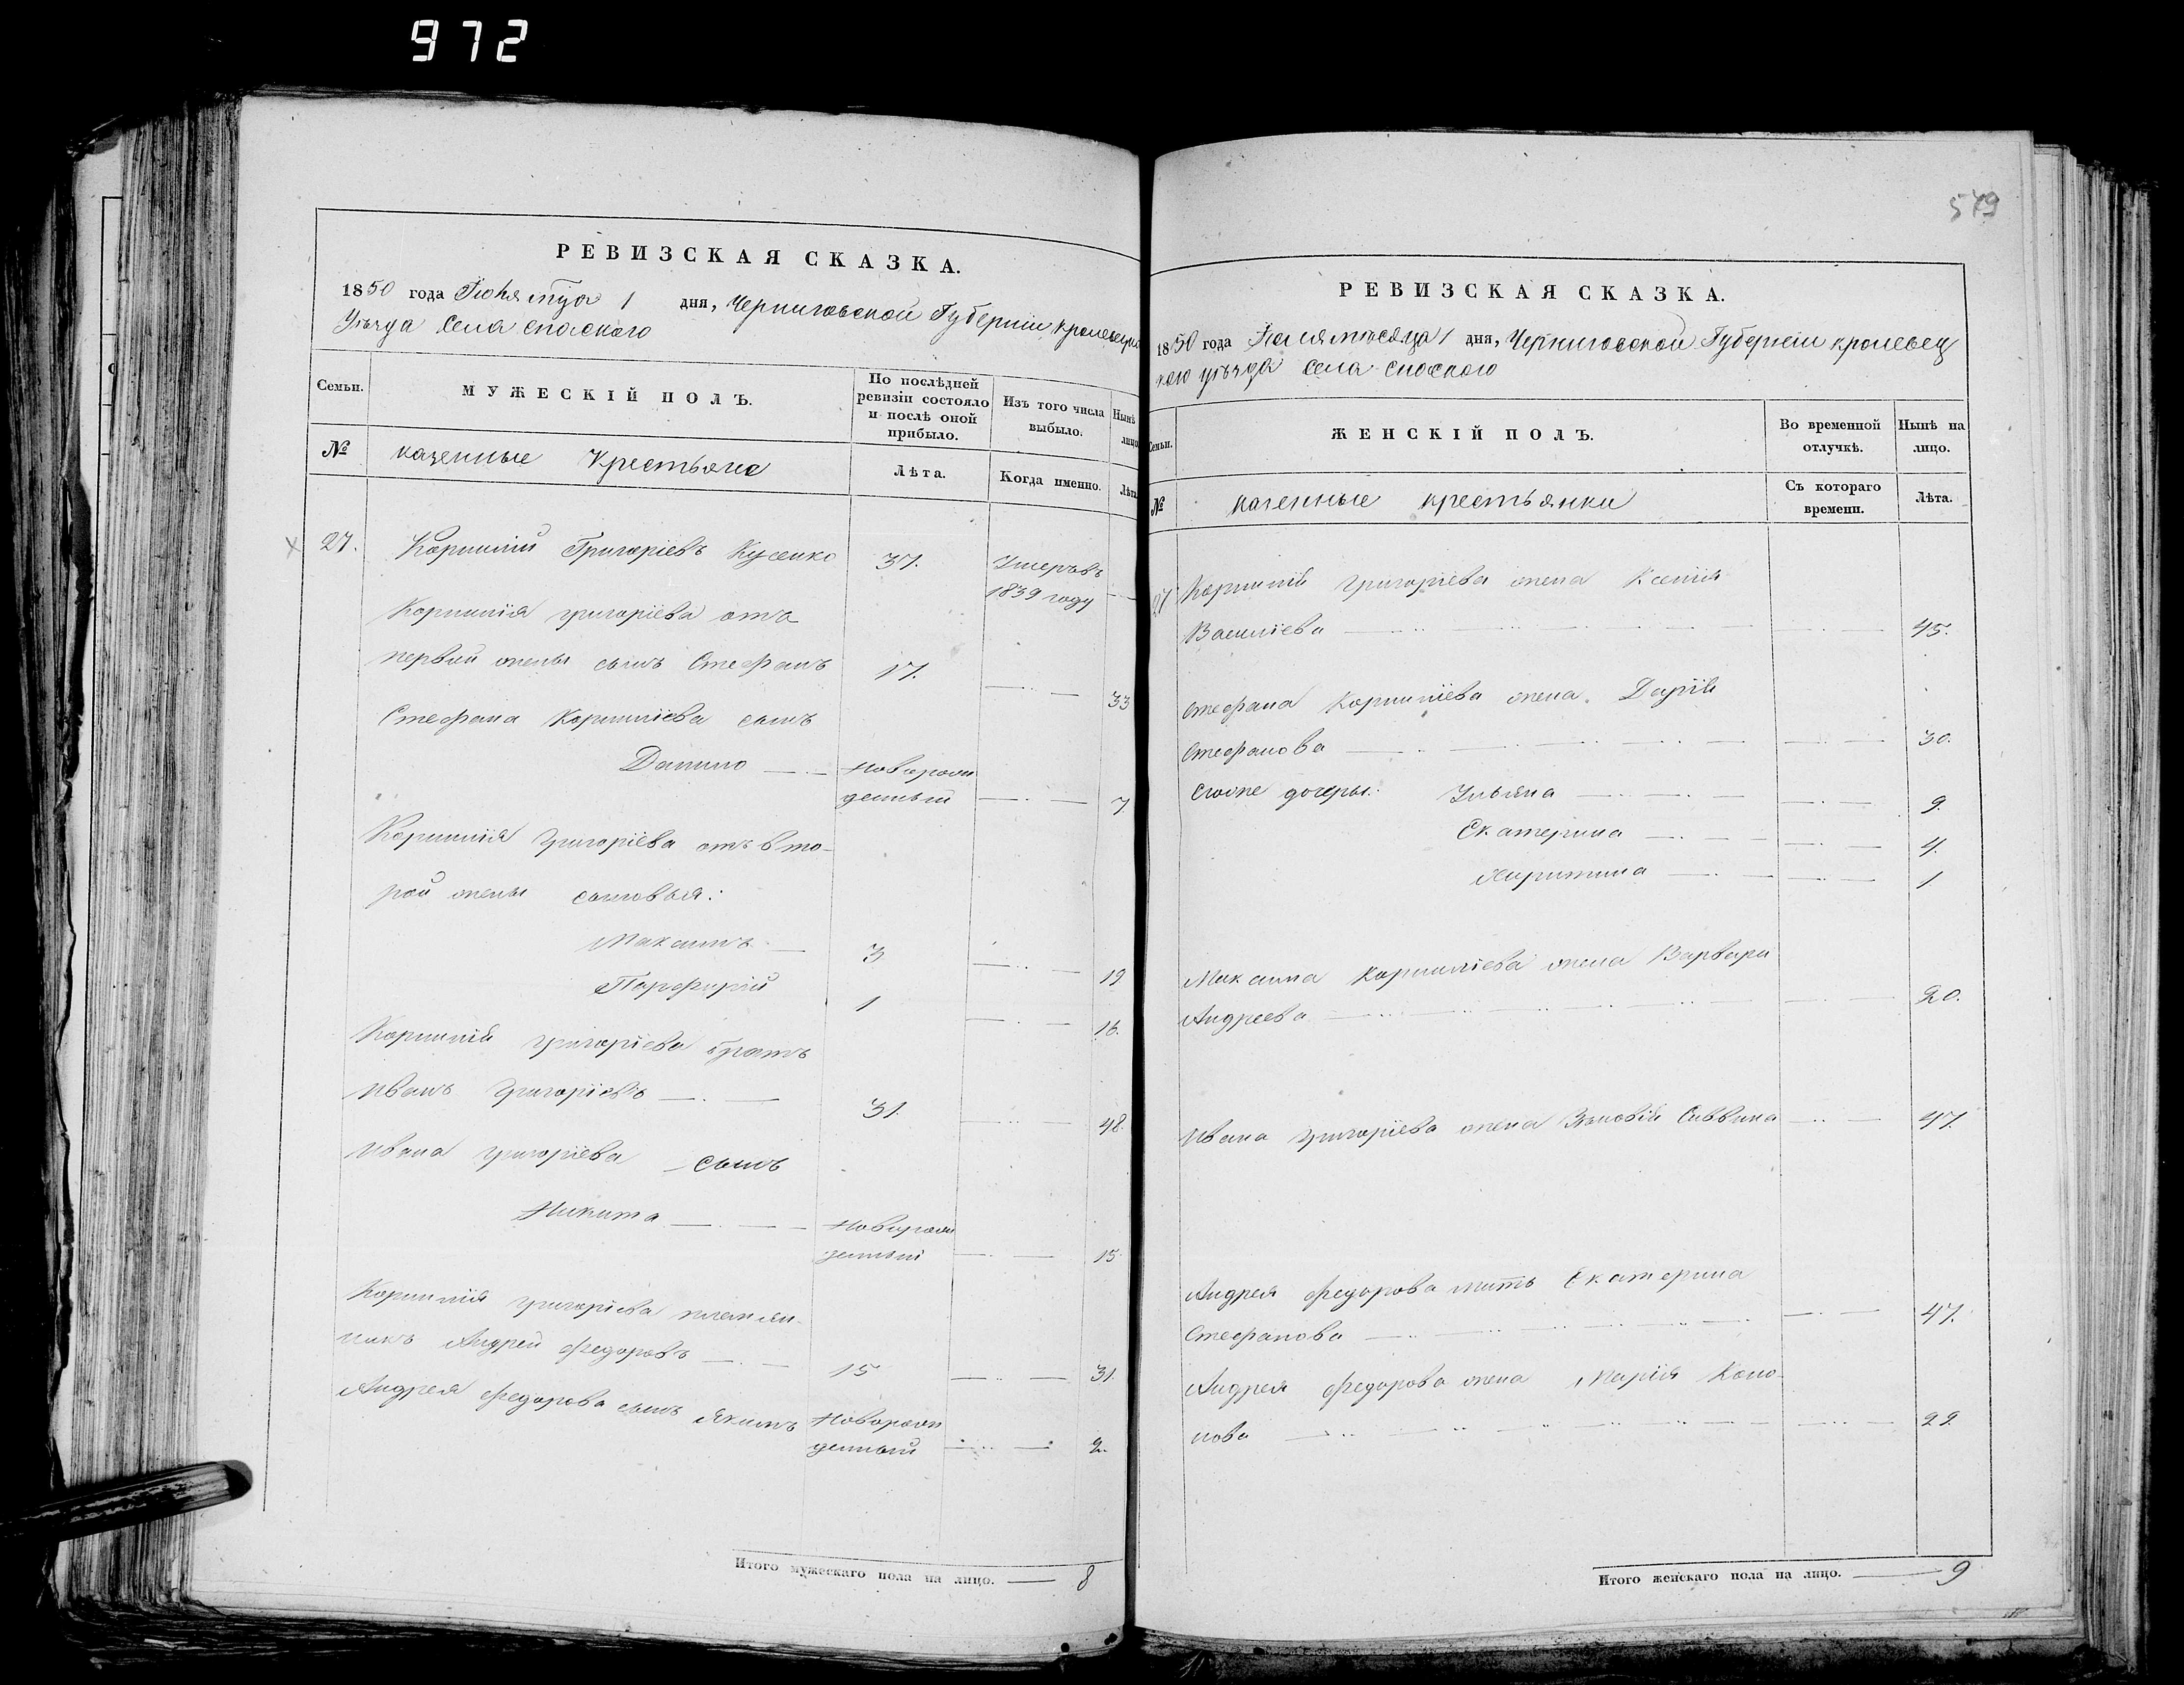 972
РЕВИЗСКАЯ СКАЗКА.
1850 года Іюня мца 1 дня, Черниговской Губерніи кролевец
Уѣзда Села Спаского
Семьи.
МУЖЕСКІЙ ПОЛЪ.
По послѣдней ревизіи состояло и послѣ оной прибыло.
Изъ того числа выбыло.
Нынѣ лицо
№
казенные Крестьяне
Лѣта.
Когда именно.
Лѣта
27. Корнилій Григоріевъ Кусенко 37. Умеръ въ
1839 году
Корнилія григоріева отъ
первой жены сынъ Стефанъ 17. 33
Стефана Корниліева сынъ
Данило Новорож
денный 7.
Корнилія григоріева отъ вто-
рой жены сыновья:
Максимъ 3 19
Порфирій 1 16.
Корнилія григоріева братъ
Иванъ григоріевъ 31. 48.
Ивана григоріева сынъ
Никита Новорож
денный 15.
Корнилія григоріева племян-
никъ Андрей Федоровъ 15 31.
Андрея Федорова сынъ Якимъ Новорож
денный 2.
Итого мужескаго пола на лицо. 8
579
РЕВИЗСКАЯ СКАЗКА.
1850 года Іюня мѣсяца 1 дня, Черниговской Губерніи кролевец
кого уѣзда Села Спаского
Семьи.
ЖЕНСКІЙ ПОЛЪ.
Во временной отлучкѣ.
Нынѣ на лицо.
№
казенные крестьянки
Съ котораго времени.
Лѣта.
27 Корнилія григоріева жена Ксенія
Василіева 45.
Стефана Корниліева жена Дарія
Стефанова 30.
Сіо же дочеры: Ульяна 9.
Екатерина 4.
1
Максима Корниліева жена Варвара
Андреева 20.
Ивана григоріева жена Зѣновія Саввина 47.
Андрея Федорова мать Екатерина
Стефанова 47.
Андрея Федорова жена Марія Коно
нова 29.
Итого женскаго пола на лицо. 9